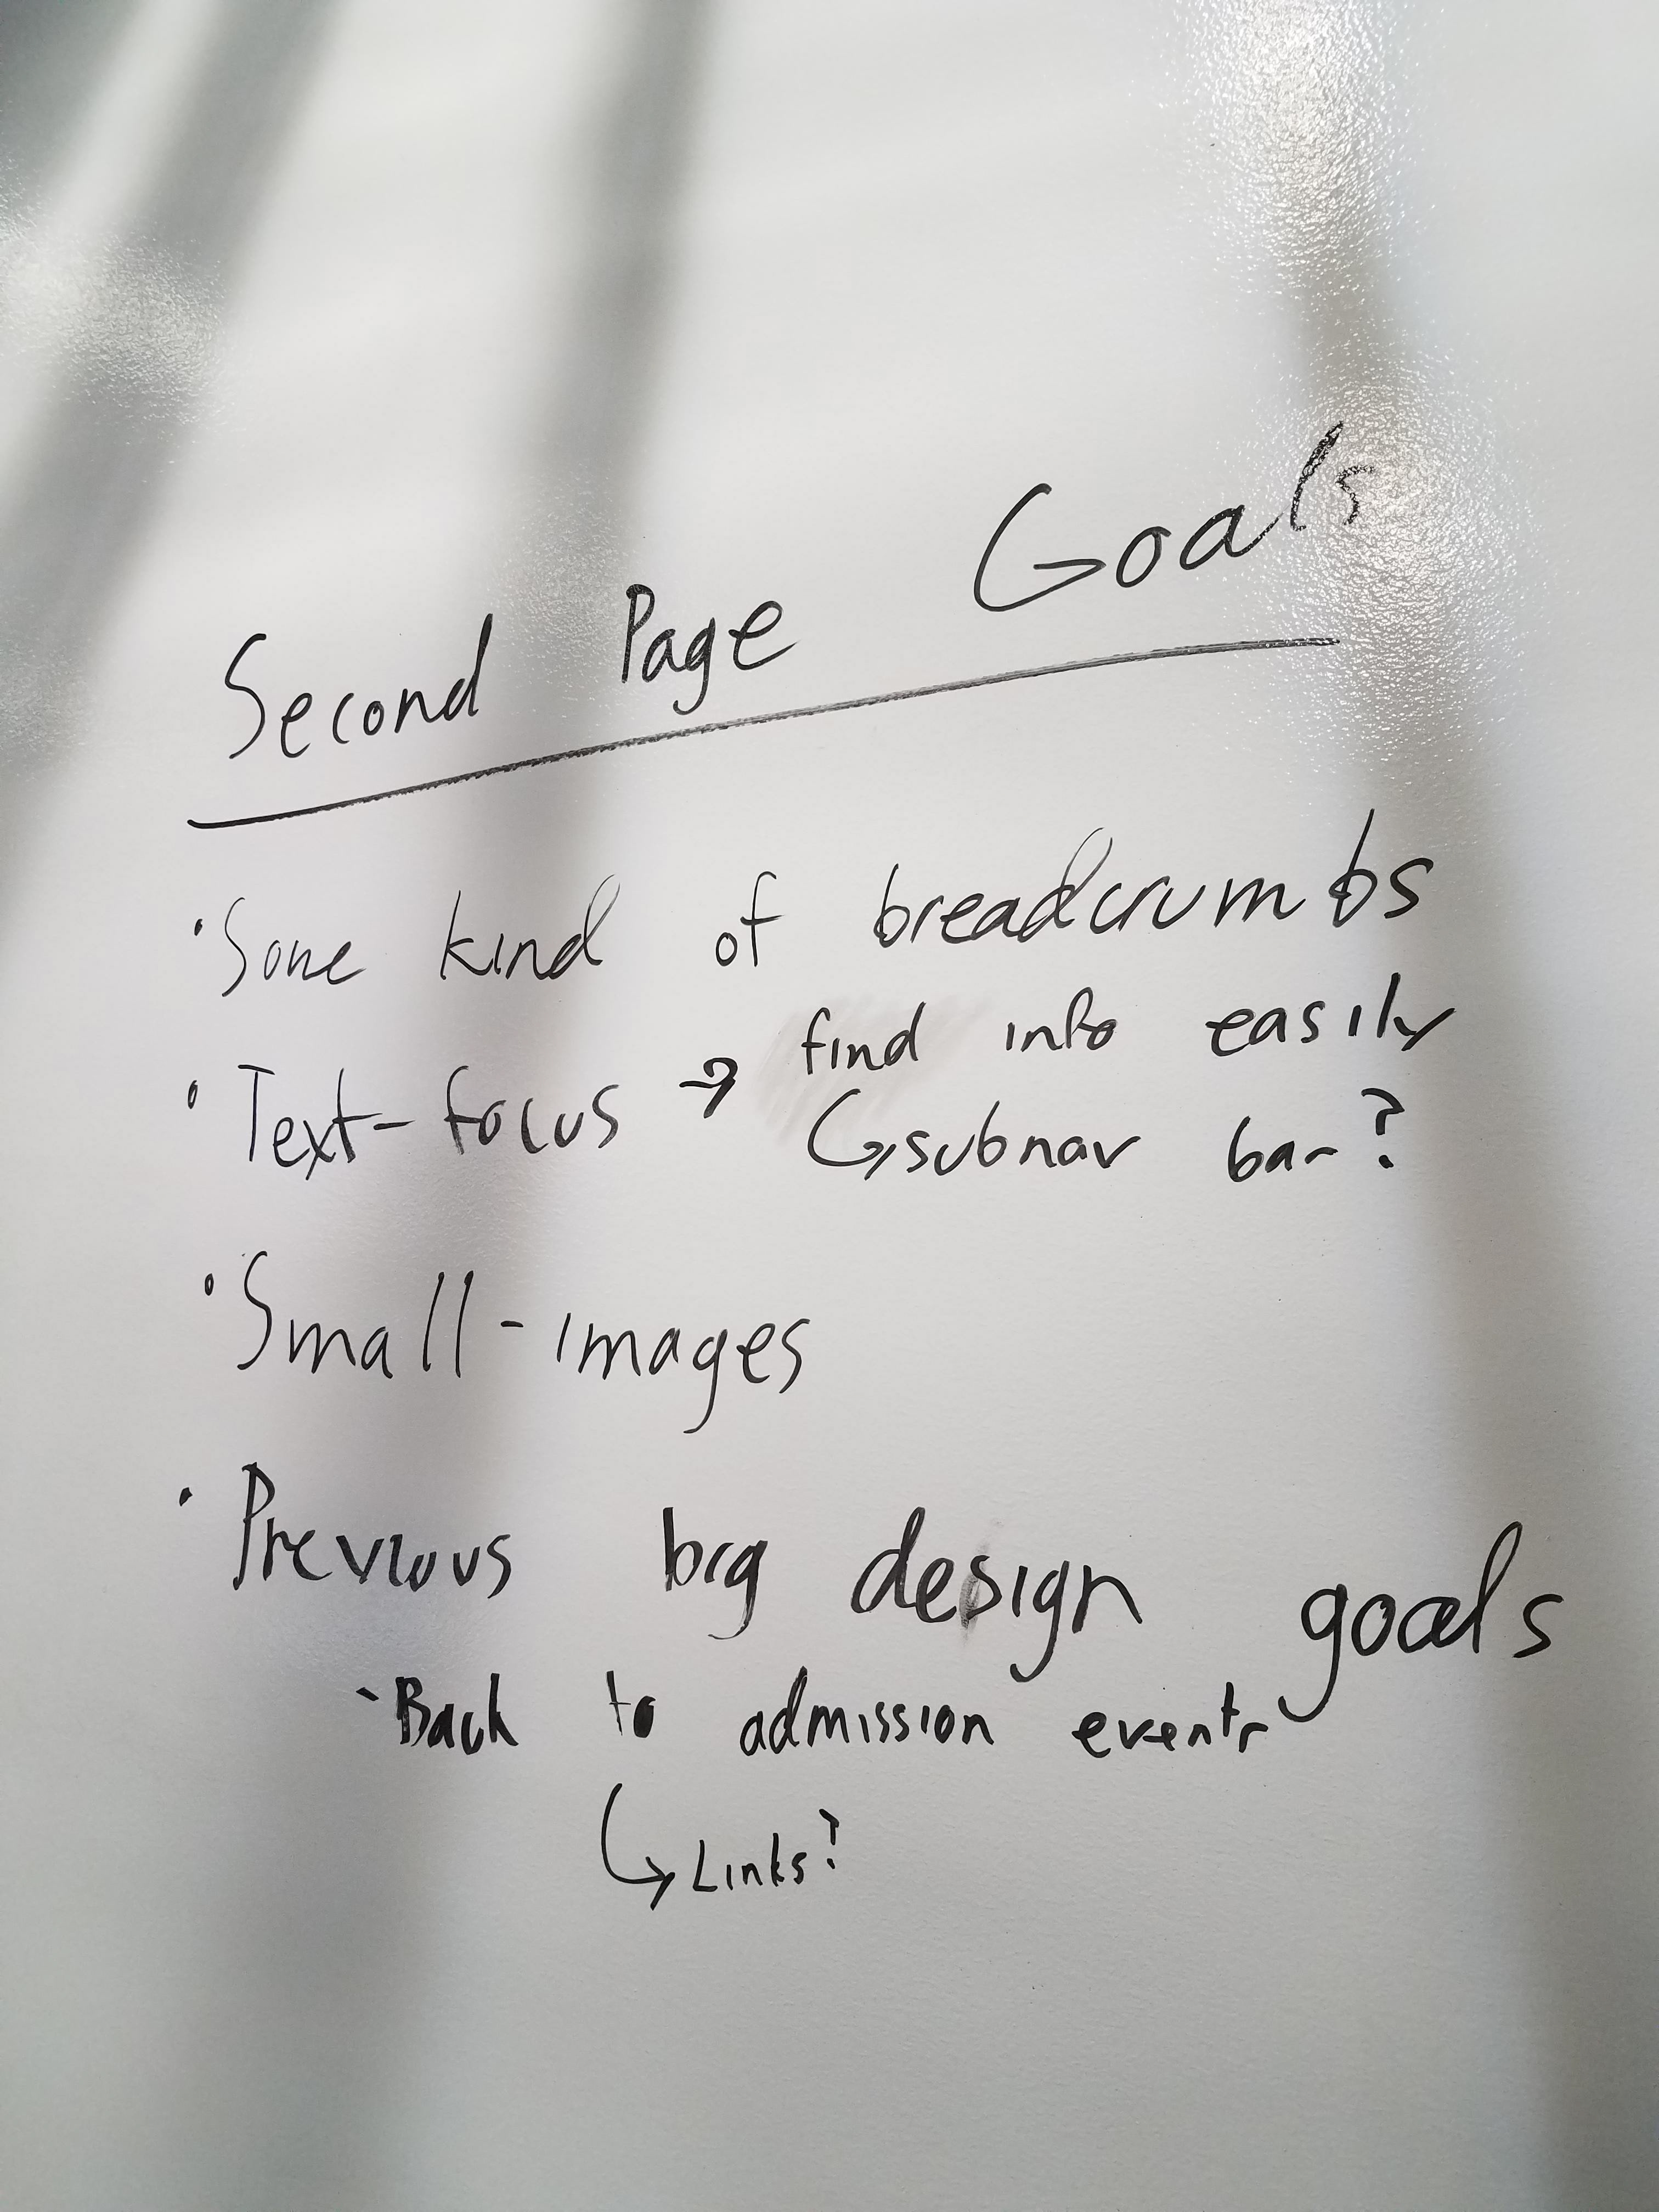 Second Page Goals
• Some kind of breadcrumbs
• Text-focus → find info easily
↳ subnav bar?
• Small-images
• Previous big design goals
• Back to admission events
↳ Links?